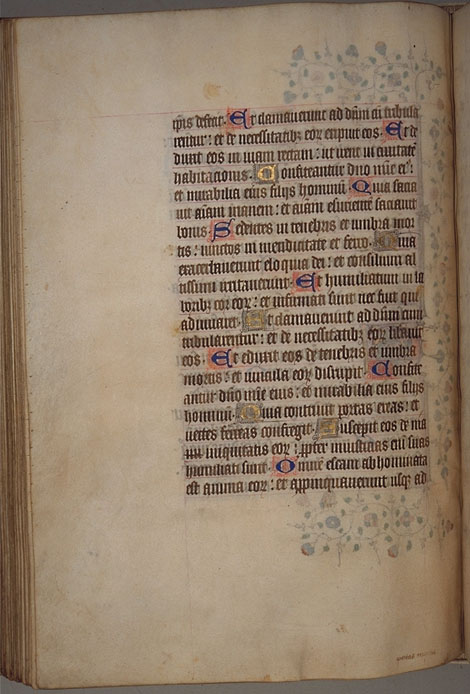 ipsis defecit. Et clamaverunt ad dñm cũ tribula
rentur: et de necessitatibz eorꝝ eripuit eos. Et de
duxit eos in viam rectam: ut irent in civitatē
habitacionis. Confiteantur dño mīe eiꝰ:
et mirabilia eius filijs hominū. Quia sacia
vit aīam inanem: et aīam esurientē saciavit
bonis. Sedentes in tenebris et umbra mor
tis: vinctos in mendicitate et ferro. Quia
exacerbaverunt eloquia dei: et consilium al
tissimi irritaverunt. Et humiliatum in la
boribz cor eorꝝ: et infirmati sunt nec fuit qui
adiuvaret. Et clamaverunt ad dñm cum
tribularentur: et de necessitatibz eorꝝ libavit
eos. Et eduxit eos de tenebris et umbra
mortis: et vincula eorꝝ disrupit. Confite
antur dño mīe eius: et mirabilia eius filijs
hominū. Quia contrivit portas ereas: et
vectes ferreas confregit. Suscepit eos de via
iniquitatis eorꝝ: ꝓpter iniusticias eñ suas
humiliati sunt. Omnē escam abhominata
est anima eorꝝ: et appropinquaverunt usqz ad